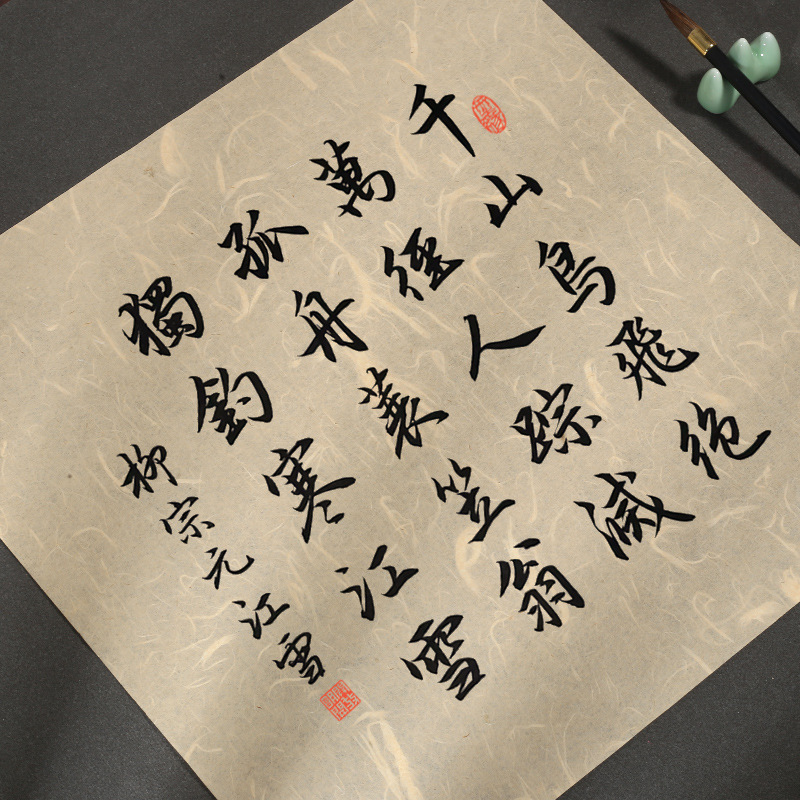 千山鳥飛絕
萬徑人踪滅
孤舟蓑笠翁
獨釣寒江雪
柳宗元江雪